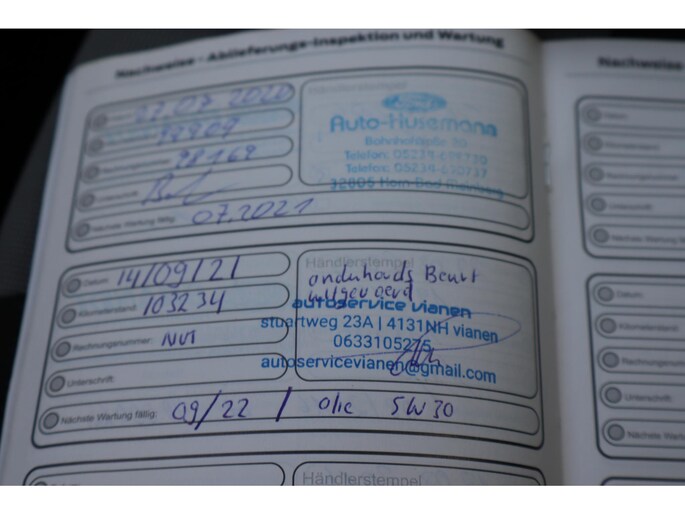 Nachweise - Ablieferungs-Inspektion und Wartung
Nachweise
Datum:
27.07.2020
Händlerstempel
Auto-Husemann
Bahnhofstraße
Telefon: 05234
Telefax: 05234
32805 Horn-Bad Meinberg
Unterschrift:
Nächste Wartung fällig: 07.2021
Datum: 14/09/21
Kilometerstand: 103234
Rechnungsnummer: NVT
Unterschrift:
Nächste Wartung fällig: 09/22 / olie 5W30
Händlerstempel
onderhouds Beurt
uitgevoerd
autoservice vianen
stuartweg 23A | 4131NH vianen
0633105275
autoservicevianen@gmail.com
Händlerstempel
Datum:
Kilometerstand:
Rechnungsnummer
Unterschrift:
Nächste Wartung
Datum:
Kilometerstand:
Rechnungsnummer
Unterschrift:
Nächste Wartung